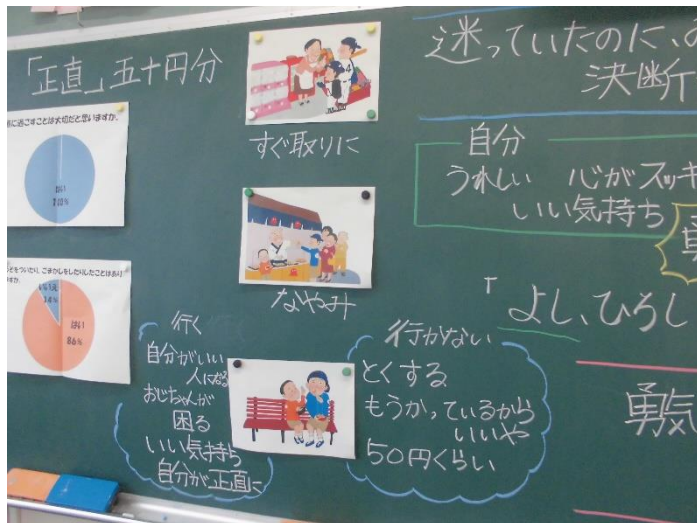 「正直」五十円分
に過ごすことは大切だと思いますか。
はい
100%
をついたり、ごまかしをしたりしたことはあり
ますか。
いいえ
14%
はい
86%
すぐ取りに
なやみ
行く
自分がいい
人になる
おじちゃんが
困る
いい気持ち
自分が正直に
行かない
とくする
もうかっているから
いいや
50円くらい
迷っていたのに、
決断
自分
うれしい 心がスッキ
いい気持ち
「よし、ひろし
勇気